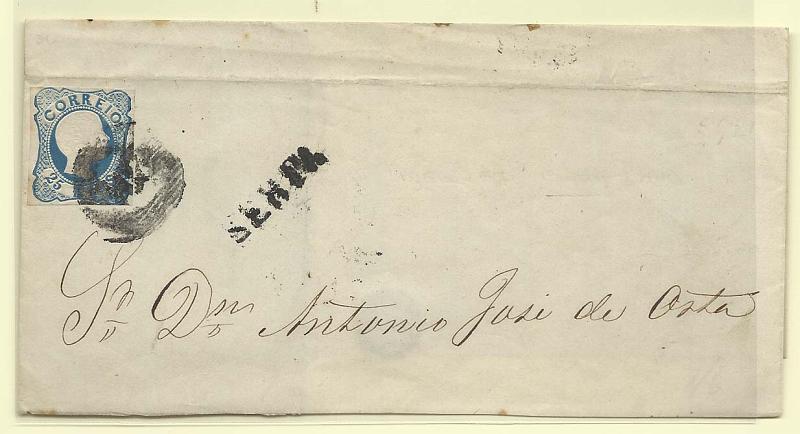 CORREIO
25
Sr. Dm. Antonio José de Costa